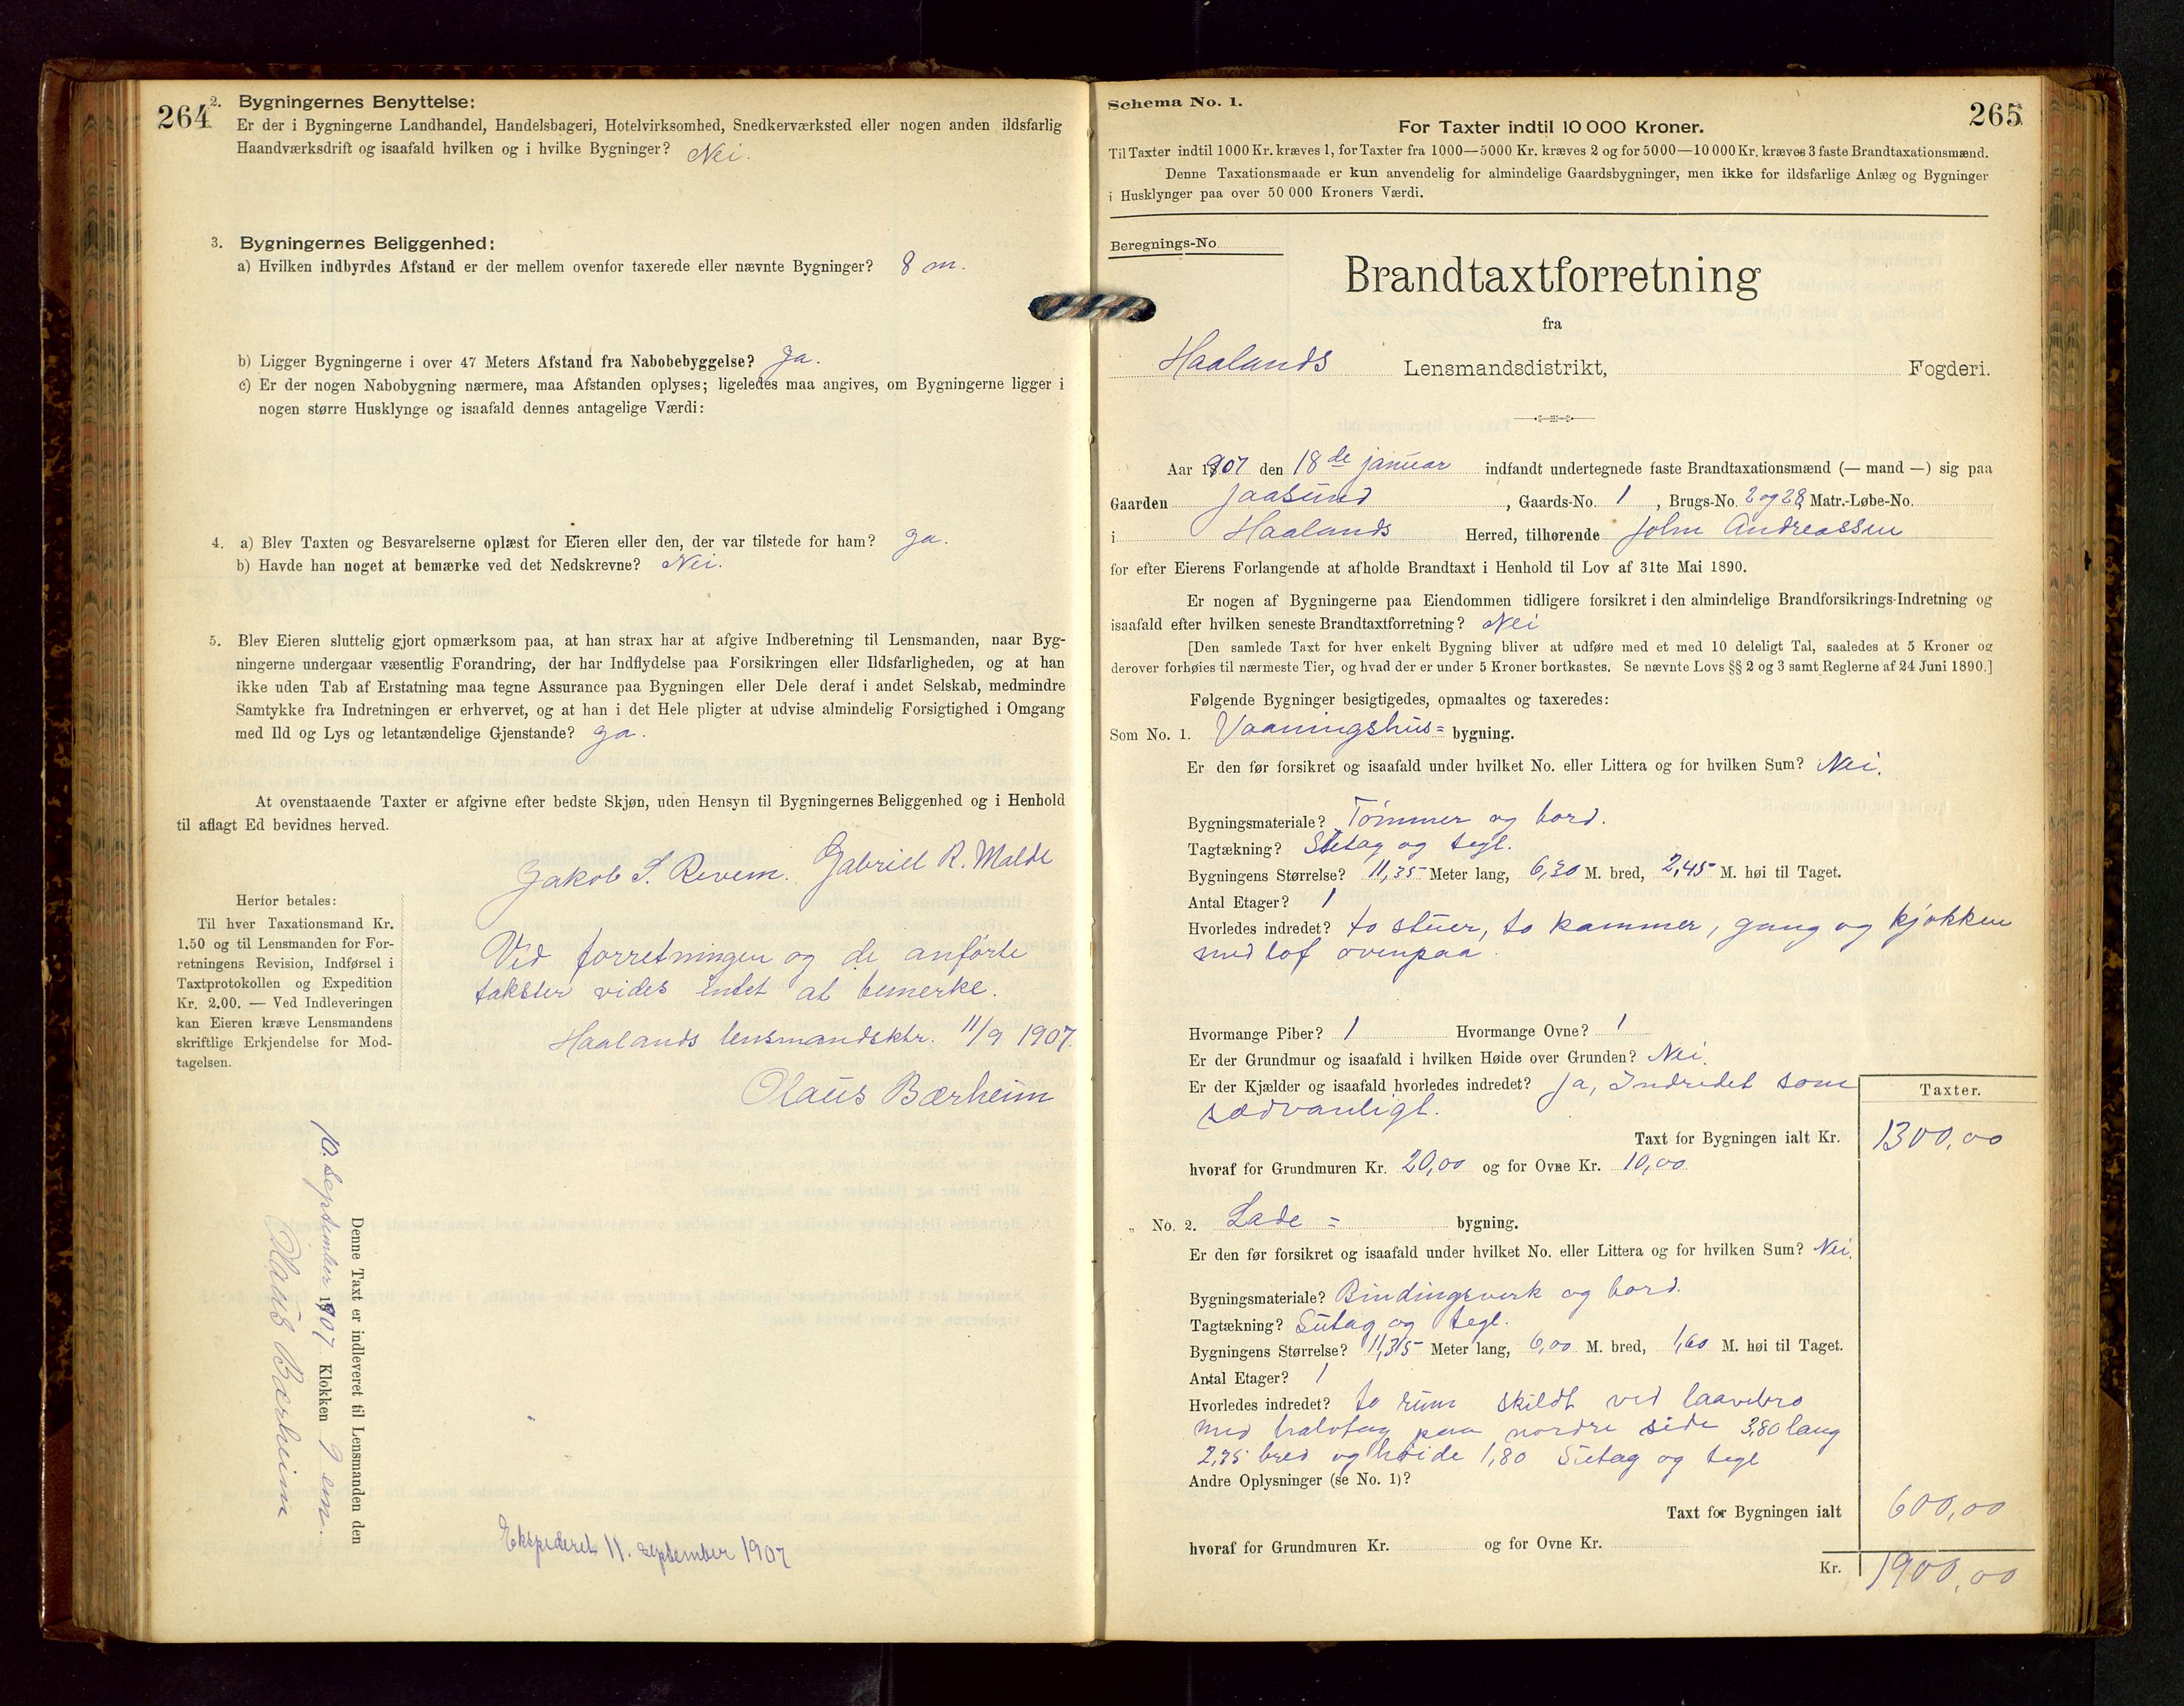 264
2. Bygningernes Benyttelse:
Er der i Bygningerne Landhandel, Handelsbageri, Hotelvirksomhed, Snedkerværksted eller nogen anden ildsfarlig
Haandværksdrift og isaafald hvilken og i hvilke Bygninger? Nei.
3. Bygningernes Beliggenhed:
a) Hvilken indbyrdes Afstand er der mellem ovenfor taxerede eller nævnte Bygninger? 8 m.
b) Ligger Bygningerne i over 47 Meters Afstand fra Nabobebyggelse? Ja.
c) Er der nogen Nabobygning nærmere, maa Afstanden oplyses; ligeledes maa angives, om Bygningerne ligger i
nogen større Husklynge og isaafald dennes antagelige Værdi:
4. a) Blev Taxten og Besvarelserne oplæst for Eieren eller den, der var tilstede for ham? Ja.
b) Havde han noget at bemærke ved det Nedskrevne? Nei.
5. Blev Eieren sluttelig gjort opmærksom paa, at han strax har at afgive Indberetning til Lensmanden, naar Byg-
ningerne undergaar væsentlig Forandring, der har Indflydelse paa Forsikringen eller Ildsfarligheden, og at han
ikke uden Tab af Erstatning maa tegne Assurance paa Bygningen eller Dele deraf i andet Selskab, medmindre
Samtykke fra Indretningen er erhvervet, og at han i det Hele pligter at udvise almindelig Forsigtighed i Omgang
med Ild og Lys og letantændelige Gjenstande? Ja.
At ovenstaaende Taxter er afgivne efter bedste Skjøn, uden Hensyn til Bygningernes Beliggenhed og i Henhold
til aflagt Ed bevidnes herved.
Jakob S. Revem. Gabriel R. Malde
Herfor betales:
Til hver Taxationsmand Kr.
1.50 og til Lensmanden for For-
retningens Revision, Indførsel i
Taxtprotokollen og Expedition
Kr. 2.00. — Ved Indleveringen
kan Eieren kræve Lensmandens
skriftlige Erkjendelse for Mod-
tagelsen.
Ved forretningen og de anførte
takster vides intet at bemerke.
Haalands lensmandsktr. 11/9 1907.
Olaus Bærheim
Denne Taxt er indleveret til Lensmanden den
10. September 1907 Klokken 9 em.
Olaus Bærheim
Ekspederet 11. september 1907
265
Schema No. 1.
For Taxter indtil 10 000 Kroner.
Til Taxter indtil 1000 Kr. kræves 1, for Taxter fra 1000—5000 Kr. kræves 2 og for 5000—10 000 Kr. kræves 3 faste Brandtaxationsmænd.
Denne Taxationsmaade er kun anvendelig for almindelige Gaardsbygninger, men ikke for ildsfarlige Anlæg og Bygninger
i Husklynger paa over 50 000 Kroners Værdi.
Beregnings-No.
Brandtaxtforretning
fra
Haalands Lensmandsdistrikt, Fogderi.
Aar 1907 den 18de januar indfandt undertegnede faste Brandtaxationsmænd (— mand —) sig paa
Gaarden Jaasund, Gaards-No. 1, Brugs-No. 2 og 28, Matr.-Løbe-No.
i Haalands Herred, tilhørende John Andreassen
for efter Eierens Forlangende at afholde Brandtaxt i Henhold til Lov af 31te Mai 1890.
Er nogen af Bygningerne paa Eiendommen tidligere forsikret i den almindelige Brandforsikrings-Indretning og
isaafald efter hvilken seneste Brandtaxtforretning? Nei
[Den samlede Taxt for hver enkelt Bygning bliver at udføre med et med 10 deleligt Tal, saaledes at 5 Kroner og
derover forhøies til nærmeste Tier, og hvad der er under 5 Kroner bortkastes. Se nævnte Lovs §§ 2 og 3 samt Reglerne af 24 Juni 1890.]
Følgende Bygninger besigtigedes, opmaaltes og taxeredes:
Som No. 1. Vaaningshus= bygning.
Er den før forsikret og isaafald under hvilket No. eller Littera og for hvilken Sum? Nei.
Bygningsmateriale? Tømmer og bord.
Tagtækning? Sutag og tegl.
Bygningens Størrelse? 11,35 Meter lang, 6,30 M. bred, 2,45 M. høi til Taget.
Antal Etager? 1
Hvorledes indredet? to stuer, to kammer, gang og kjøkken
med lof ovenpaa.
Hvormange Piber? 1 Hvormange Ovne? 1
Er der Grundmur og isaafald i hvilken Høide over Grunden? Nei.
Er der Kjælder og isaafald hvorledes indredet? Ja, Indredet som
sædvanligt.
Taxter.
Taxt for Bygningen ialt Kr. 1300,00
hvoraf for Grundmuren Kr. 20,00 og for Ovne Kr. 10,00
„ No. 2. Lade = bygning.
Er den før forsikret og isaafald under hvilket No. eller Littera og for hvilken Sum? Nei.
Bygningsmateriale? Bindingsverk og bord.
Tagtækning? Sutag og tegl.
Bygningens Størrelse? 11,35 Meter lang, 6,00 M. bred, 1,60 M. høi til Taget.
Antal Etager? 1
Hvorledes indredet? to rum skildt ved laavebro
med halvtag paa nordre side 3,80 lang
bred og høide 1,80 Sutag og tegl
Andre Oplysninger (se No. 1)?
Taxt for Bygningen ialt 600,00
hvoraf for Grundmuren Kr. og for Ovne Kr.
Kr. 1900,00